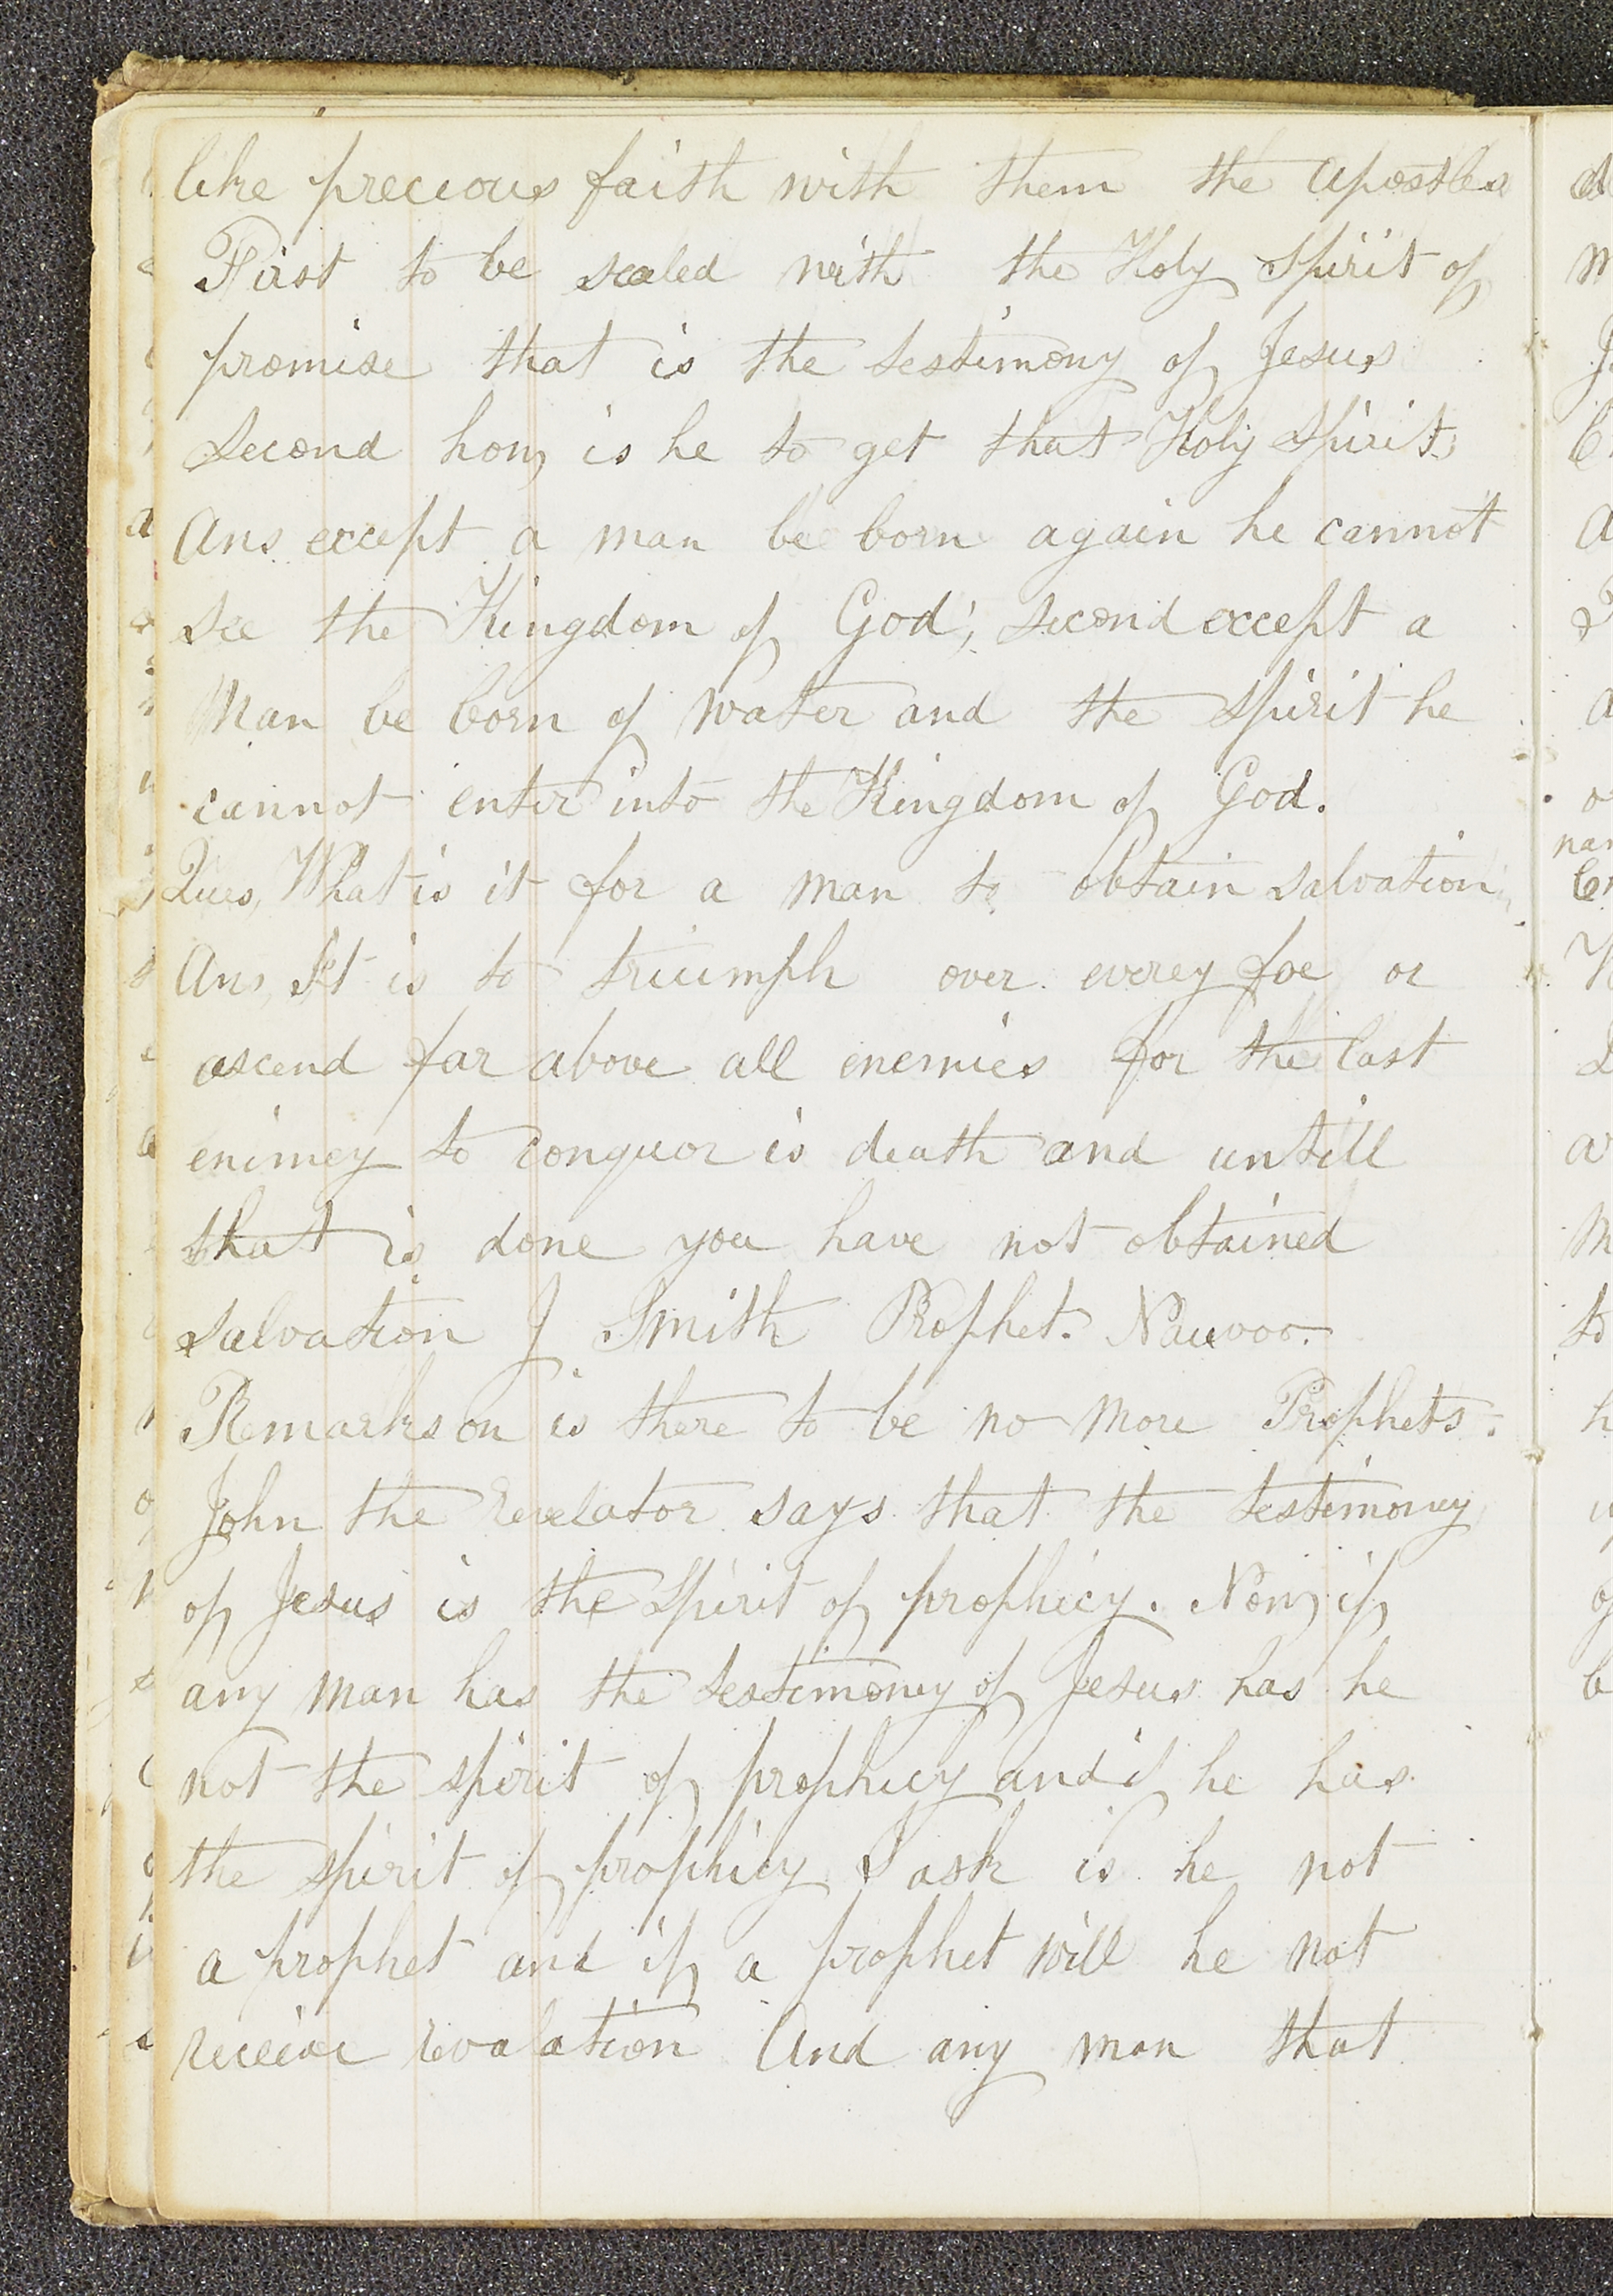 like precious faith with them the apostles
First to be sealed with the Holy Spirit of
promise that is the testimony of Jesus
Second how is he to get that Holy Spirit
Ans except a man be born again he cannot
see the Kingdom of God; second except a
Man be born of water and the spirit he
cannot enter into the Kingdom of God.
Ques, What is it for a man to obtain salvation
Ans, It is to triumph over everey foe or
ascend far above all enemies for the last
enimey to conquor is death and untill
that is done you have not obtained
salvation J Smith Prophet. Nauvoo.
Remarks on is there to be no more Prophets.
John the revelator says that the testimony
of Jesus is the Spirit of prophicy. Now if
any man has the testimony of Jesus has he
not the spirit of prophicy and if he has
the spirit of prophicy I ask is he not
a prophet and if a prophet will he not
receive revalation And any man that